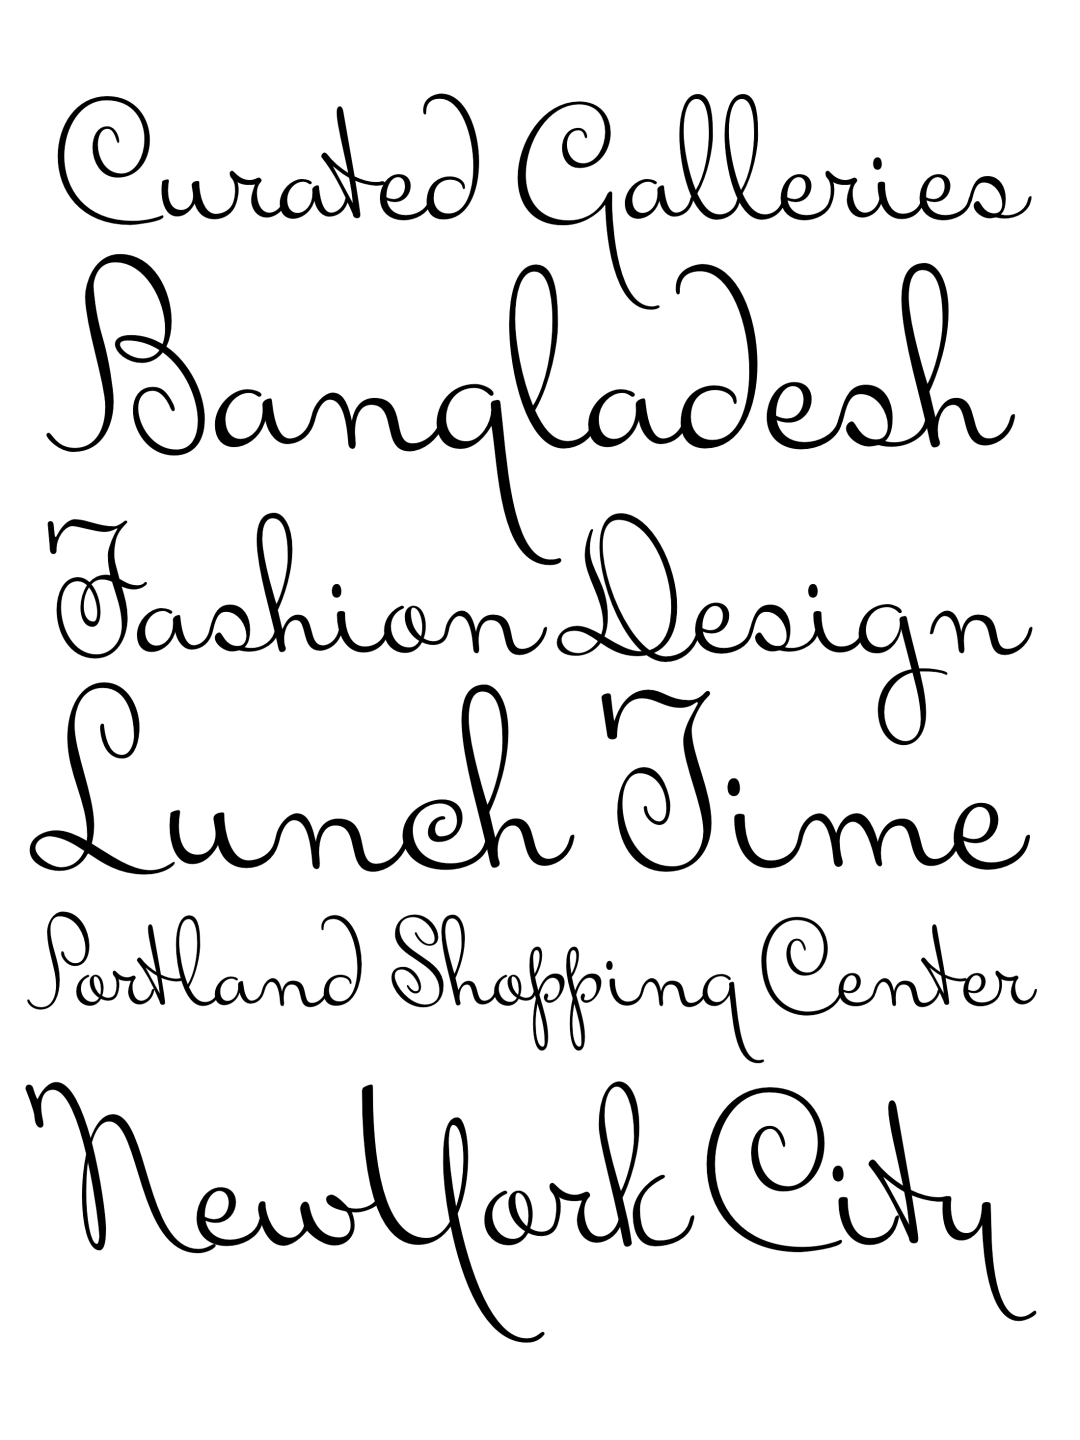 Curated Galleries
Bangladesh
Fashion Design
Lunch Time
Portland Shopping Center
New York City